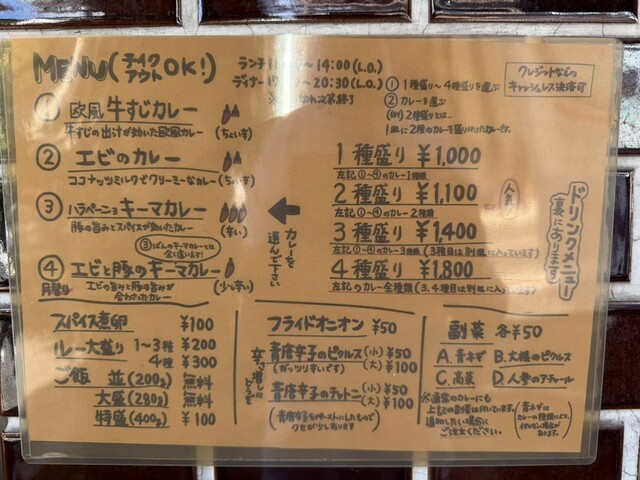 MENU(テイクアウトOK!)
ランチ 〜14:00(L.O.)
ディナー 〜20:30(L.O.)
クレジットなどのキャッシュレス決済可
① 欧風 牛すじカレー
牛すじの出汁が効いた欧風カレー (ちょい辛)
② エビのカレー
ココナッツミルクでクリーミーなカレー (ちょい辛)
③ ハラペーニョ キーマカレー
豚の旨みとスパイスが効いたカレー (辛い)
④ エビと豚のキーマカレー
月替り エビの旨みと豚の旨みが合わさったカレー (少し辛い)
カレーを選んで下さい
① 1種盛り〜4種盛りを選ぶ
② カレーを選ぶ
(例) 2種盛りとは…
1皿に2種のカレーを盛り付けたカレーです。
1種盛り ¥1,000
左記①〜④のカレー1種類
2種盛り ¥1,100
左記①〜④のカレー2種類
人気!
3種盛り ¥1,400
左記①〜④のカレー3種類 (3種目は別皿に入っています)
4種盛り ¥1,800
左記のカレー全種類 (3,4種目は別皿に入っています)
ドリンクメニュー
裏にあります
スパイス煮卵 ¥100
ルー大盛り 1〜3種 ¥200
4種 ¥300
ご飯 並(200g) 無料
大盛(280g) 無料
特盛(400g) ¥100
フライドオニオン ¥50
青唐辛子のピクルス (小) ¥50
(ガッツリ辛いです) (大) ¥100
青唐辛子のチャトニ (小) ¥50
(大) ¥100
(青唐辛子をペーストにしたものでクセが少しあります)
副菜 各¥50
A. 青ネギ B. 大根のピクルス
C. 高菜 D. 人参のアチャール
※通常のカレーにも
上記の副菜は付いています。
追加したい場合に
ご注文ください。